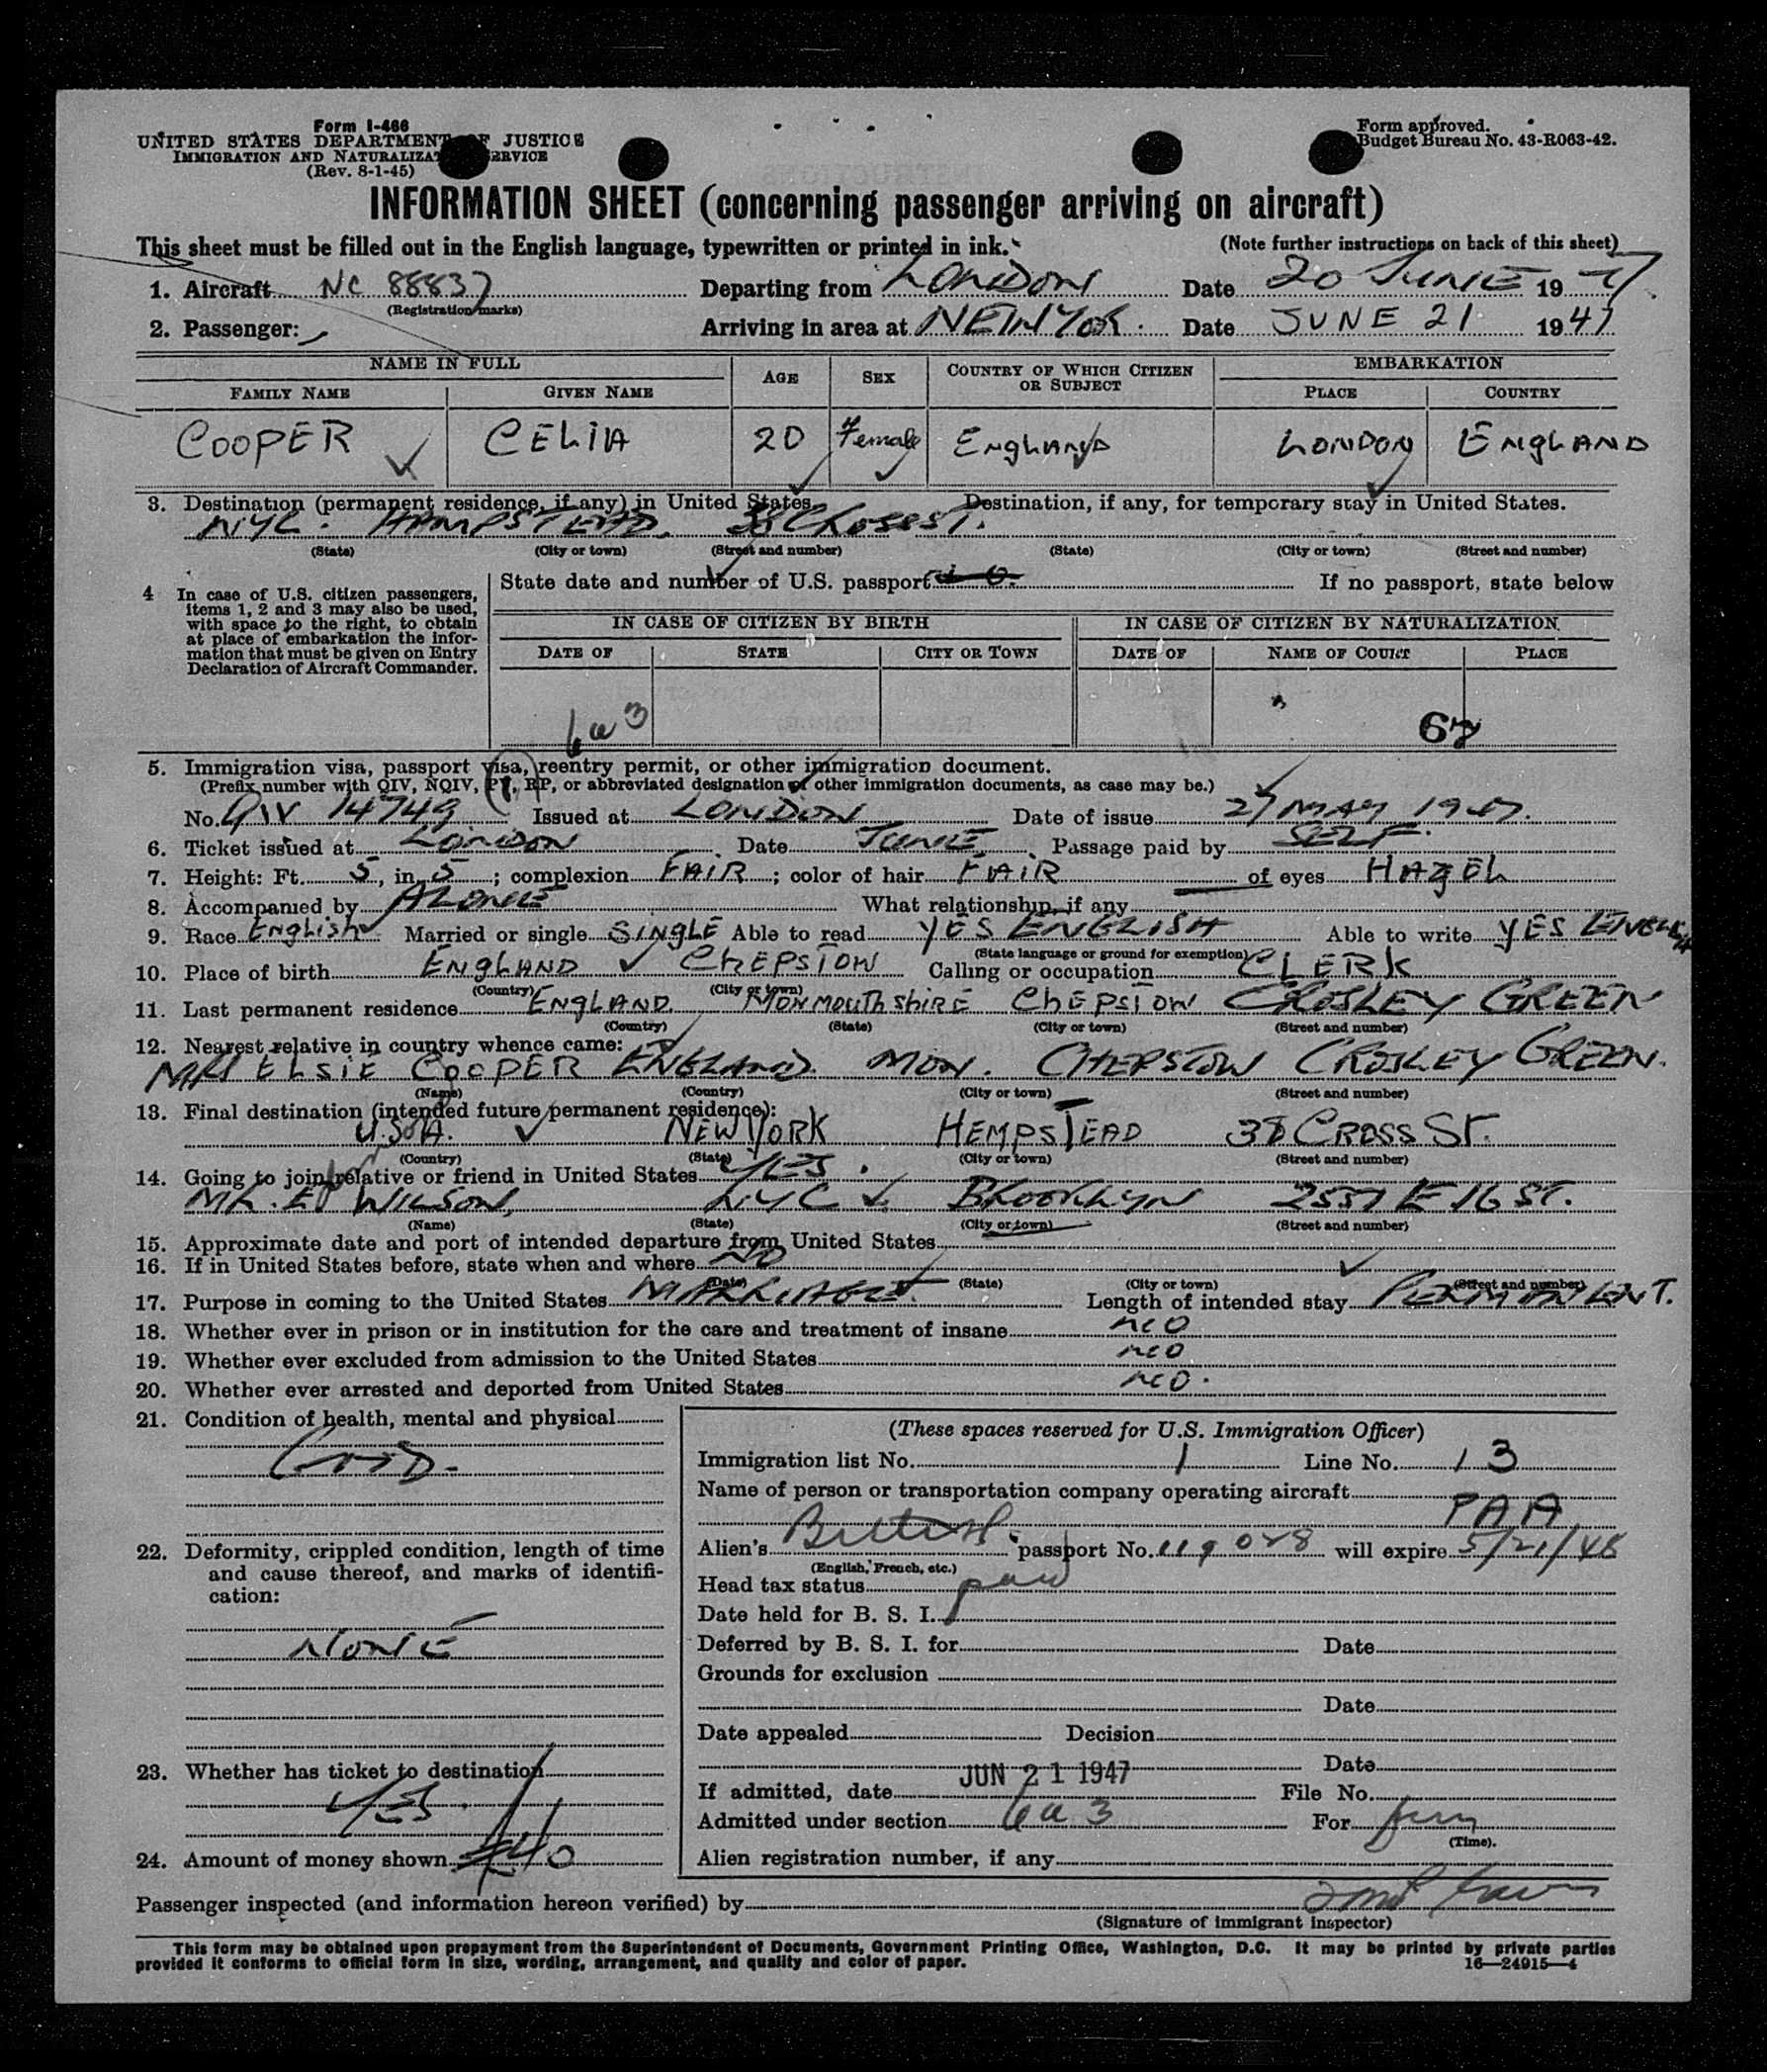 Form I-466
UNITED STATES DEPARTMENT OF JUSTICE
IMMIGRATION AND NATURALIZATION SERVICE
(Rev. 8-1-45)
Form approved.
Budget Bureau No. 43-R063-42.
INFORMATION SHEET (concerning passenger arriving on aircraft)
This sheet must be filled out in the English language, typewritten or printed in ink.
(Note further instructions on back of this sheet)
1. Aircraft NC 88837 Departing from LONDON Date 20 JUNE 1947.
(Registration marks)
2. Passenger: Arriving in area at NEW YORK. Date JUNE 21 1947
NAME IN FULL AGE SEX COUNTRY OF WHICH CITIZEN OR SUBJECT EMBARKATION
FAMILY NAME GIVEN NAME PLACE COUNTRY
COOPER CELIA 20 Female ENGLAND LONDON ENGLAND
3. Destination (permanent residence, if any) in United States. Destination, if any, for temporary stay in United States.
NYC. HAMPSTEAD. 38 CROSS ST.
(State) (City or town) (Street and number) (State) (City or town) (Street and number)
4 In case of U.S. citizen passengers, items 1, 2 and 3 may also be used, with space to the right, to obtain at place of embarkation the information that must be given on Entry Declaration of Aircraft Commander.
State date and number of U.S. passport If no passport, state below
IN CASE OF CITIZEN BY BIRTH IN CASE OF CITIZEN BY NATURALIZATION
DATE OF STATE CITY OR TOWN DATE OF NAME OF COURT PLACE
6a3
5. Immigration visa, passport visa, reentry permit, or other immigration document.
(Prefix number with QIV, NQIV, PV, RP, or abbreviated designation of other immigration documents, as case may be.)
No. QIV 14749 Issued at LONDON Date of issue 27 MAY 1947.
6. Ticket issued at LONDON Date JUNE. Passage paid by SELF.
7. Height: Ft. 5, in 5; complexion FAIR; color of hair FAIR of eyes HAZEL
8. Accompanied by ALONE What relationship, if any
9. Race English Married or single SINGLE Able to read YES ENGLISH Able to write YES ENGLISH
(State language or ground for exemption)
10. Place of birth ENGLAND CHEPSTOW Calling or occupation CLERK
(Country) (City or town)
11. Last permanent residence ENGLAND. MONMOUTHSHIRE CHEPSTOW CROSLEY GREEN
(Country) (State) (City or town) (Street and number)
12. Nearest relative in country whence came:
ELSIE COOPER ENGLAND. MON. CHEPSTOW CROSLEY GREEN.
(Name) (Country) (City or town) (Street and number)
13. Final destination (intended future permanent residence):
U.S.A. NEW YORK HEMPSTEAD 38 CROSS ST.
(Country) (State) (City or town) (Street and number)
14. Going to join relative or friend in United States YES.
MR. ED WILSON, NYC BROOKLYN 2557 E 16 ST.
(Name) (State) (City or town) (Street and number)
15. Approximate date and port of intended departure from United States
16. If in United States before, state when and where NO
(Date) (State) (City or town) (Street and number)
17. Purpose in coming to the United States MARRIAGE. Length of intended stay PERMANENT.
18. Whether ever in prison or in institution for the care and treatment of insane NO
19. Whether ever excluded from admission to the United States NO
20. Whether ever arrested and deported from United States NO.
21. Condition of health, mental and physical
GOOD.
22. Deformity, crippled condition, length of time and cause thereof, and marks of identification:
NONE
23. Whether has ticket to destination
YES.
24. Amount of money shown 40
(These spaces reserved for U.S. Immigration Officer)
Immigration list No. 1 Line No. 13
Name of person or transportation company operating aircraft
PAA
Alien's British passport No. 119028 will expire 5/21/48
(English, French, etc.)
Head tax status paid
Date held for B. S. I.
Deferred by B. S. I. for Date
Grounds for exclusion
Date
Date appealed Decision
Date
If admitted, date JUN 21 1947 File No.
Admitted under section 6a3 For perm
(Time).
Alien registration number, if any
Passenger inspected (and information hereon verified) by
(Signature of immigrant inspector)
This form may be obtained upon prepayment from the Superintendent of Documents, Government Printing Office, Washington, D.C. It may be printed by private parties
provided it conforms to official form in size, wording, arrangement, and quality and color of paper.
16—24915-4